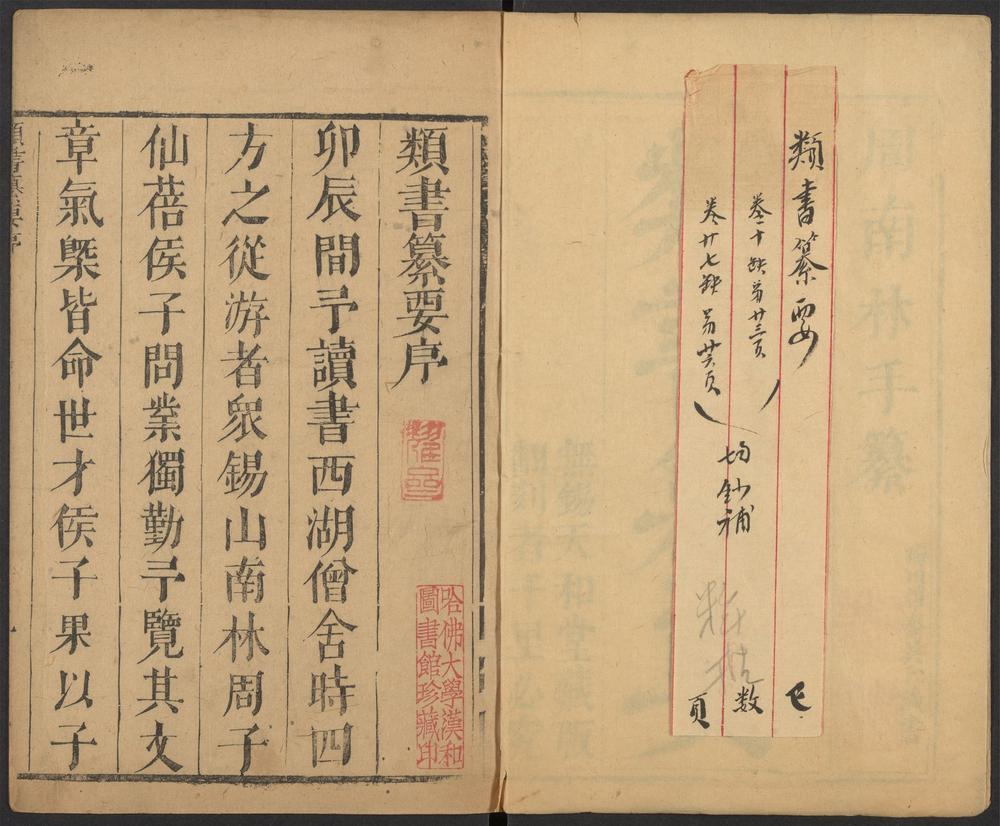 類書纂要
卷十缺第廿三頁
卷廿七缺第廿六頁
均鈔補
數
頁
類書纂要序
卯辰間予讀書西湖僧舍時四
方之從游者衆錫山南林周子
仙蓓侯子問業獨勤予覽其文
章氣槩皆命世才侯子果以子
哈佛大學漢和
圖書館珍藏印
南林手纂
無錫天和堂藏版
翻刻者千里必究